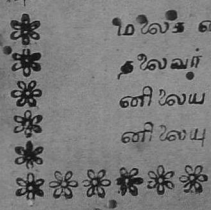 மலைக
தலைவர்
னிலைய
னிலையு